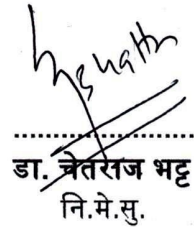 डा. चेतराज भट्ट
नि.मे.सु.